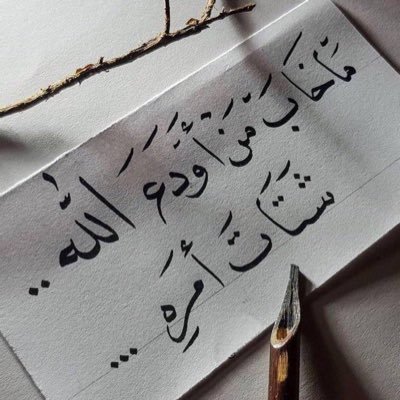 مَا خَابَ مَنْ أَوْدَعَ اللّٰه..
شَتَاتَ أَمرِهِ...